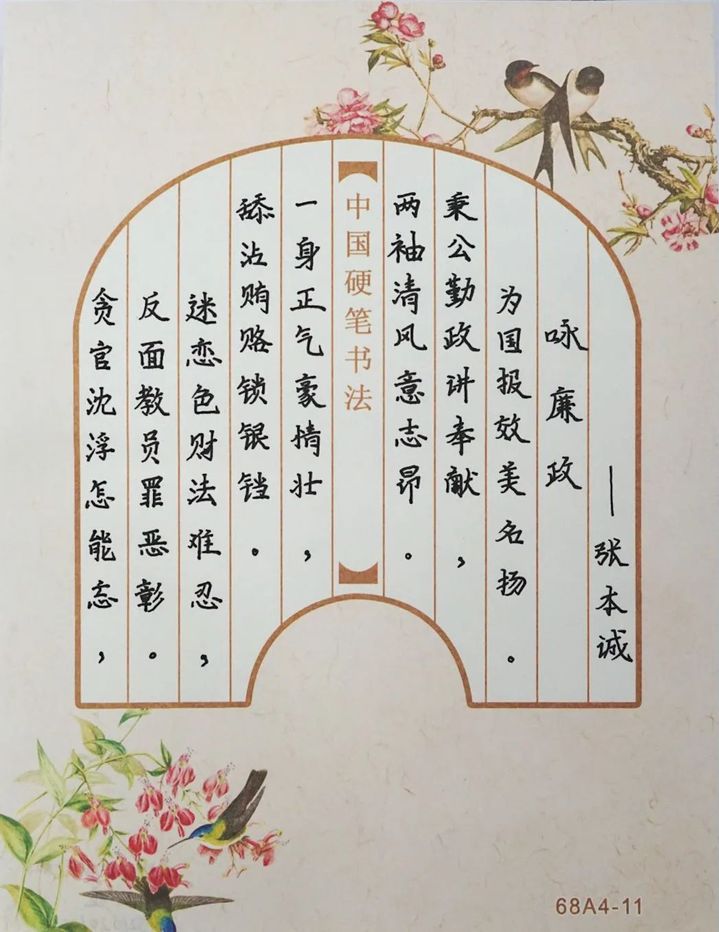 贪官沈浮怎能忘，
反面教员罪恶彰。
迷恋色财法难忍，
舔沾贿赂锁银铛。
一身正气豪情壮，
中国硬笔书法
两袖清风意志昂。
秉公勤政讲奉献，
为国报效美名扬。
咏廉政
——张本诚
68A4-11